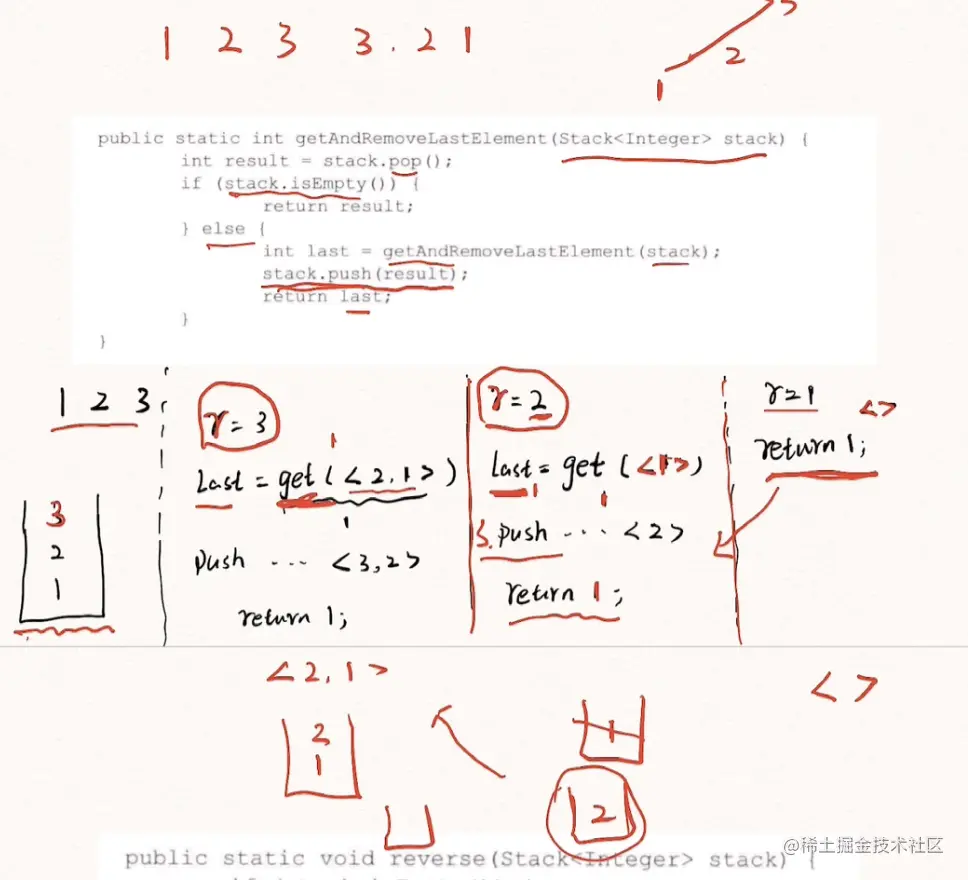 1 2 3 3 . 2 1
1 2 3
public static int getAndRemoveLastElement(Stack<Integer> stack) {
int result = stack.pop();
if (stack.isEmpty()) {
return result;
} else {
int last = getAndRemoveLastElement(stack);
stack.push(result);
return last;
}
}
1 2 3
3
2
1
r = 3
1
Last = get(<2,1>)
1
push ... <3,2>
return 1;
r = 2
Last = get(<1>)
1 1
S.push ... <2>
return 1;
r=1
<>
return 1;
<2,1>
2
1
1
2
<>
public static void reverse(Stack<Integer> stack) {
@稀土掘金技术社区